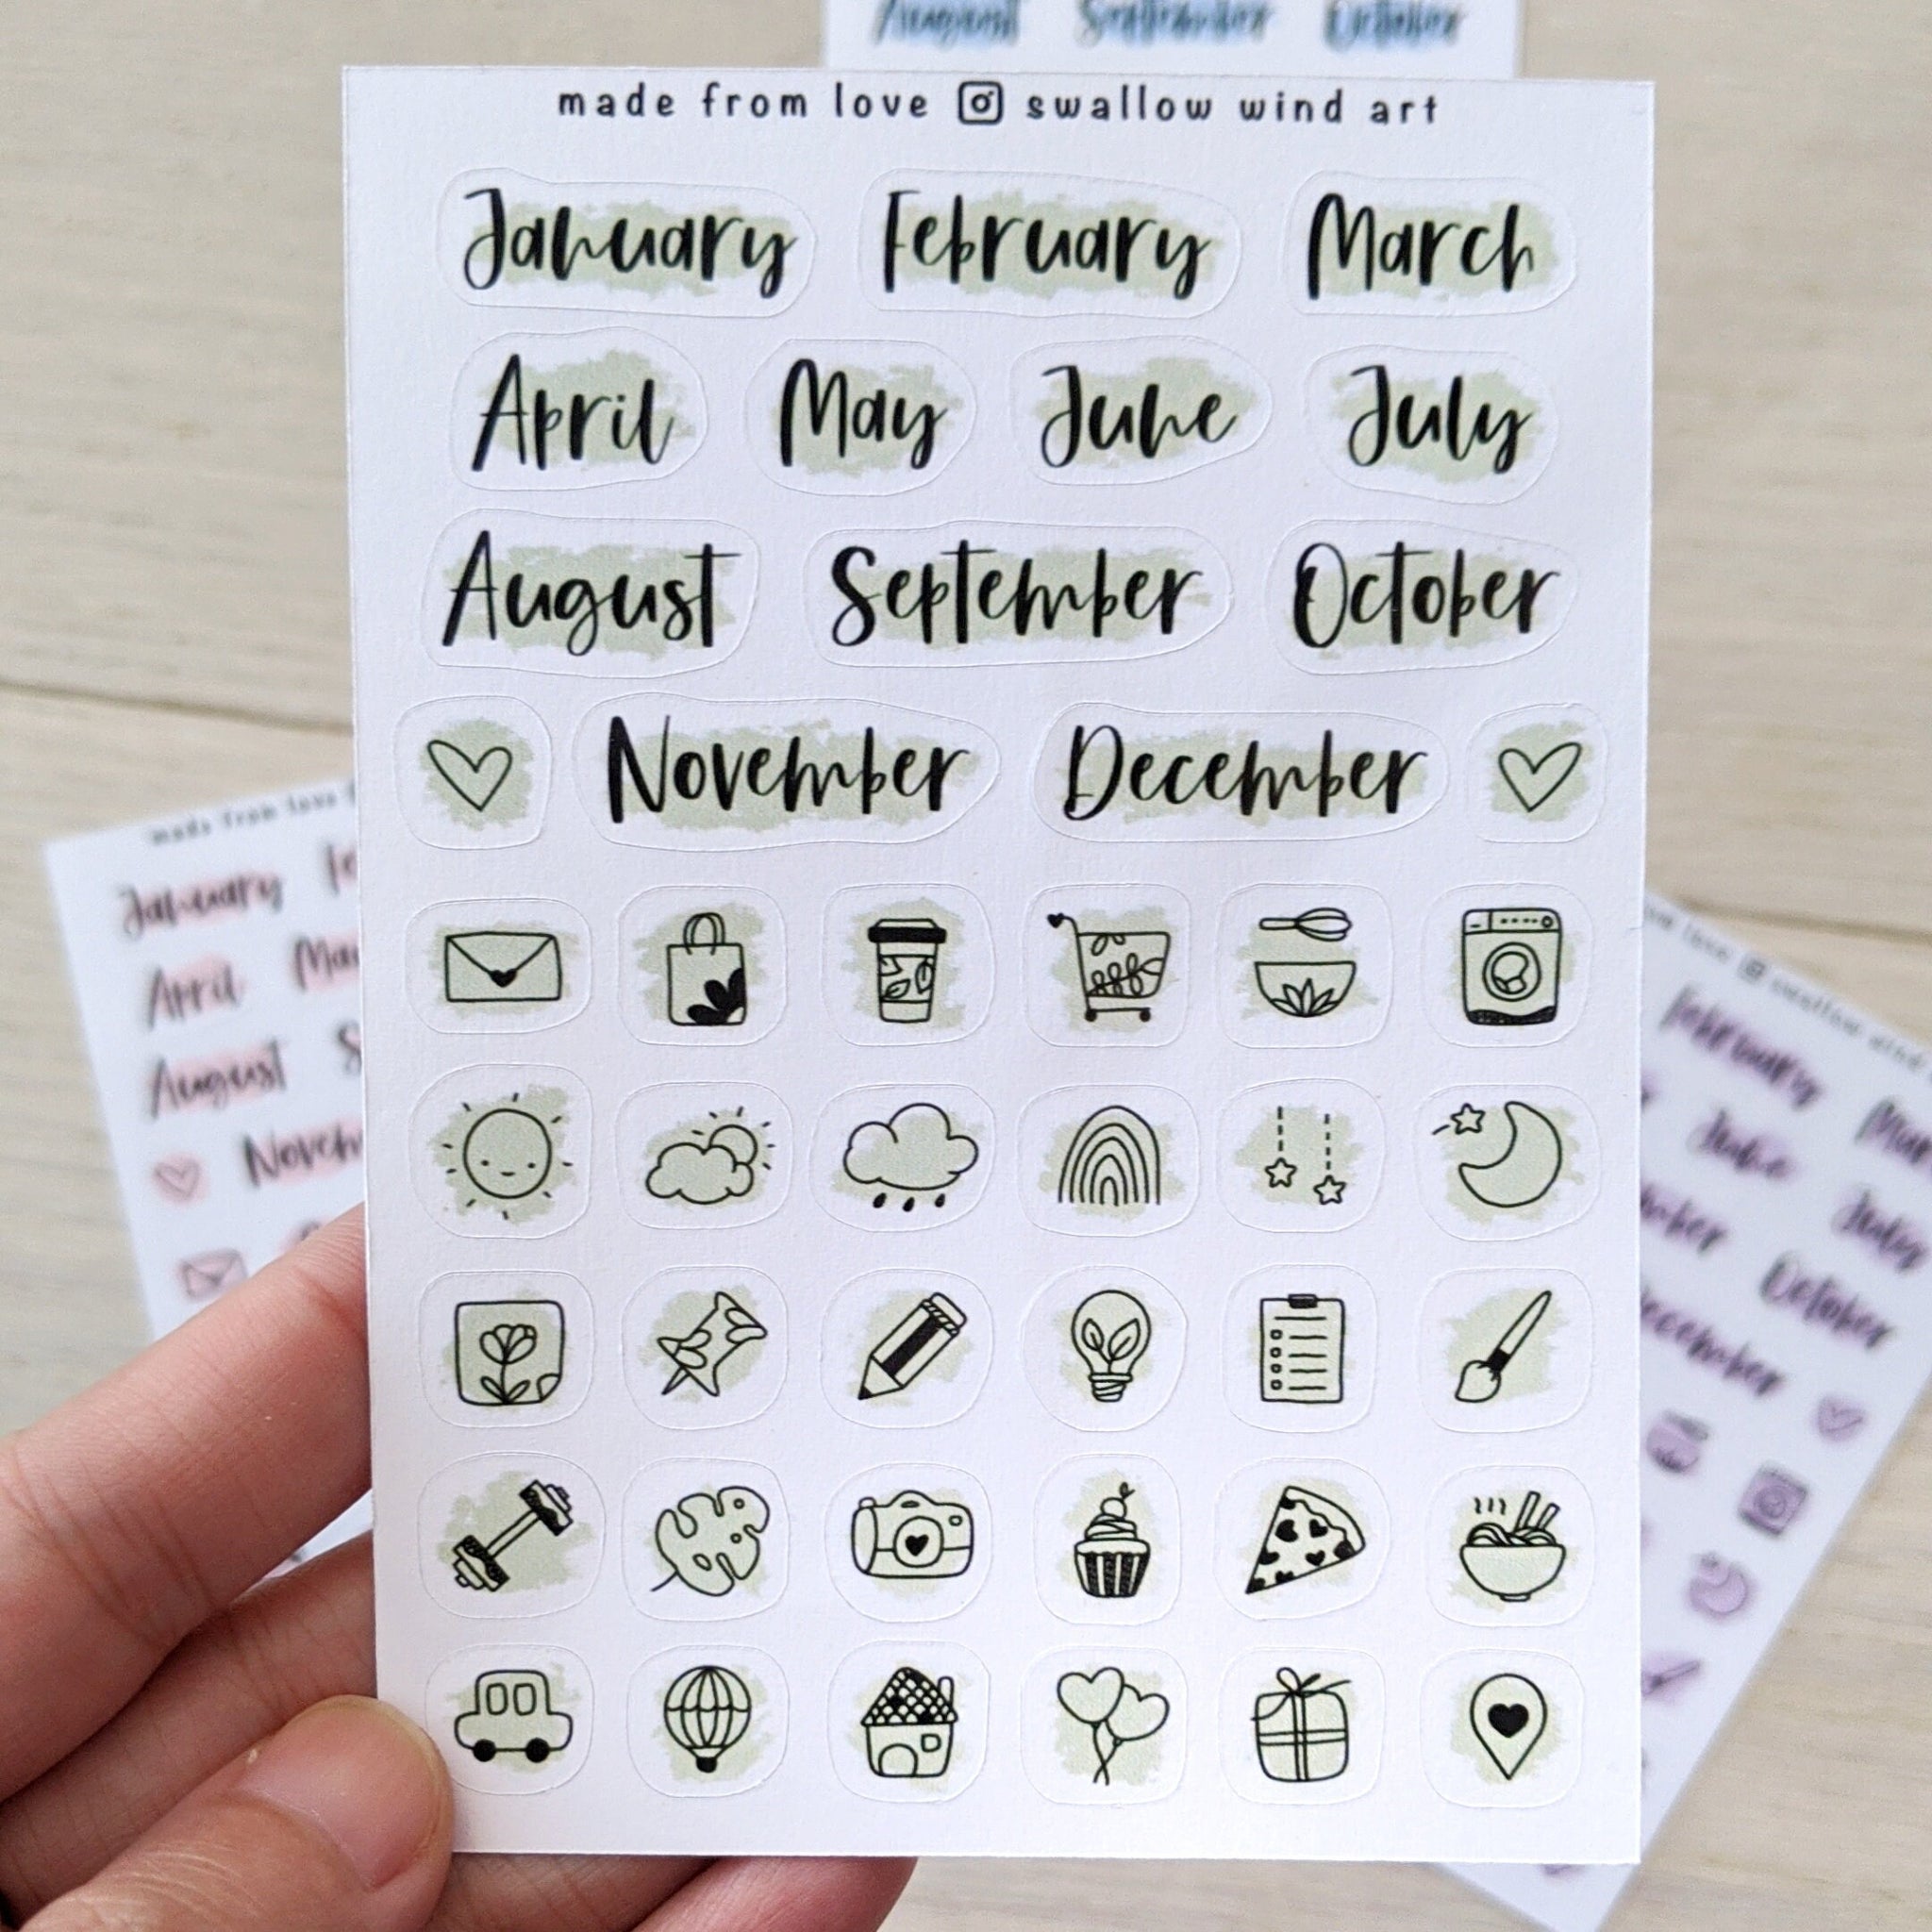 August September October
made from love swallow wind art
January February March
April May June July
August September October
November December
made from love
January
April
August
Novem
love swallow wind
February
June
July
October